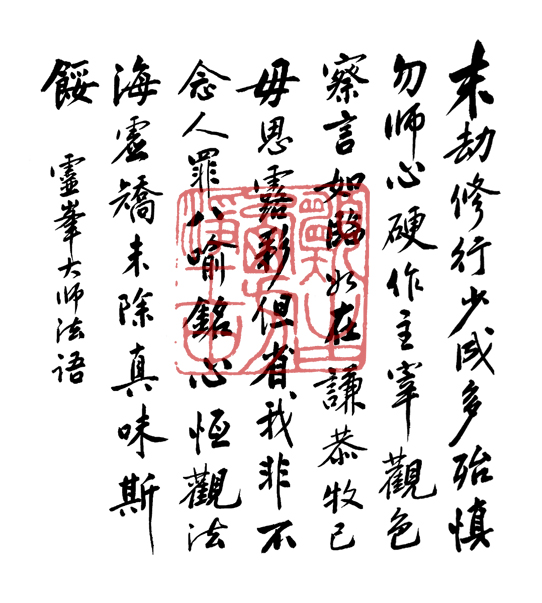 末劫修行少成多殆慎
勿師心硬作主宰觀色
察言如臨如在謙恭牧己
毋恩露彩但省我非不
念人罪八喻銘心恆觀法
海虛矯未除真味斯
餒
靈峯大師法語